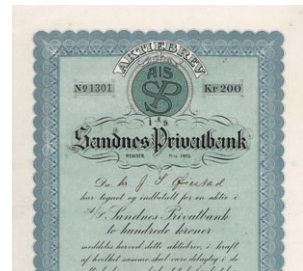 AKTIEBREV
A/S
SPB
No 1301 Kr 200
I A/S
Sandnes Privatbank
Da hr J S
har tegnet og indbetalt for en aktie i
A/S Sandnes Privatbank
to hundrede kroner
meddeles herved dette aktiebrev, i kraft
af hvilket samme skal være delagtig i de